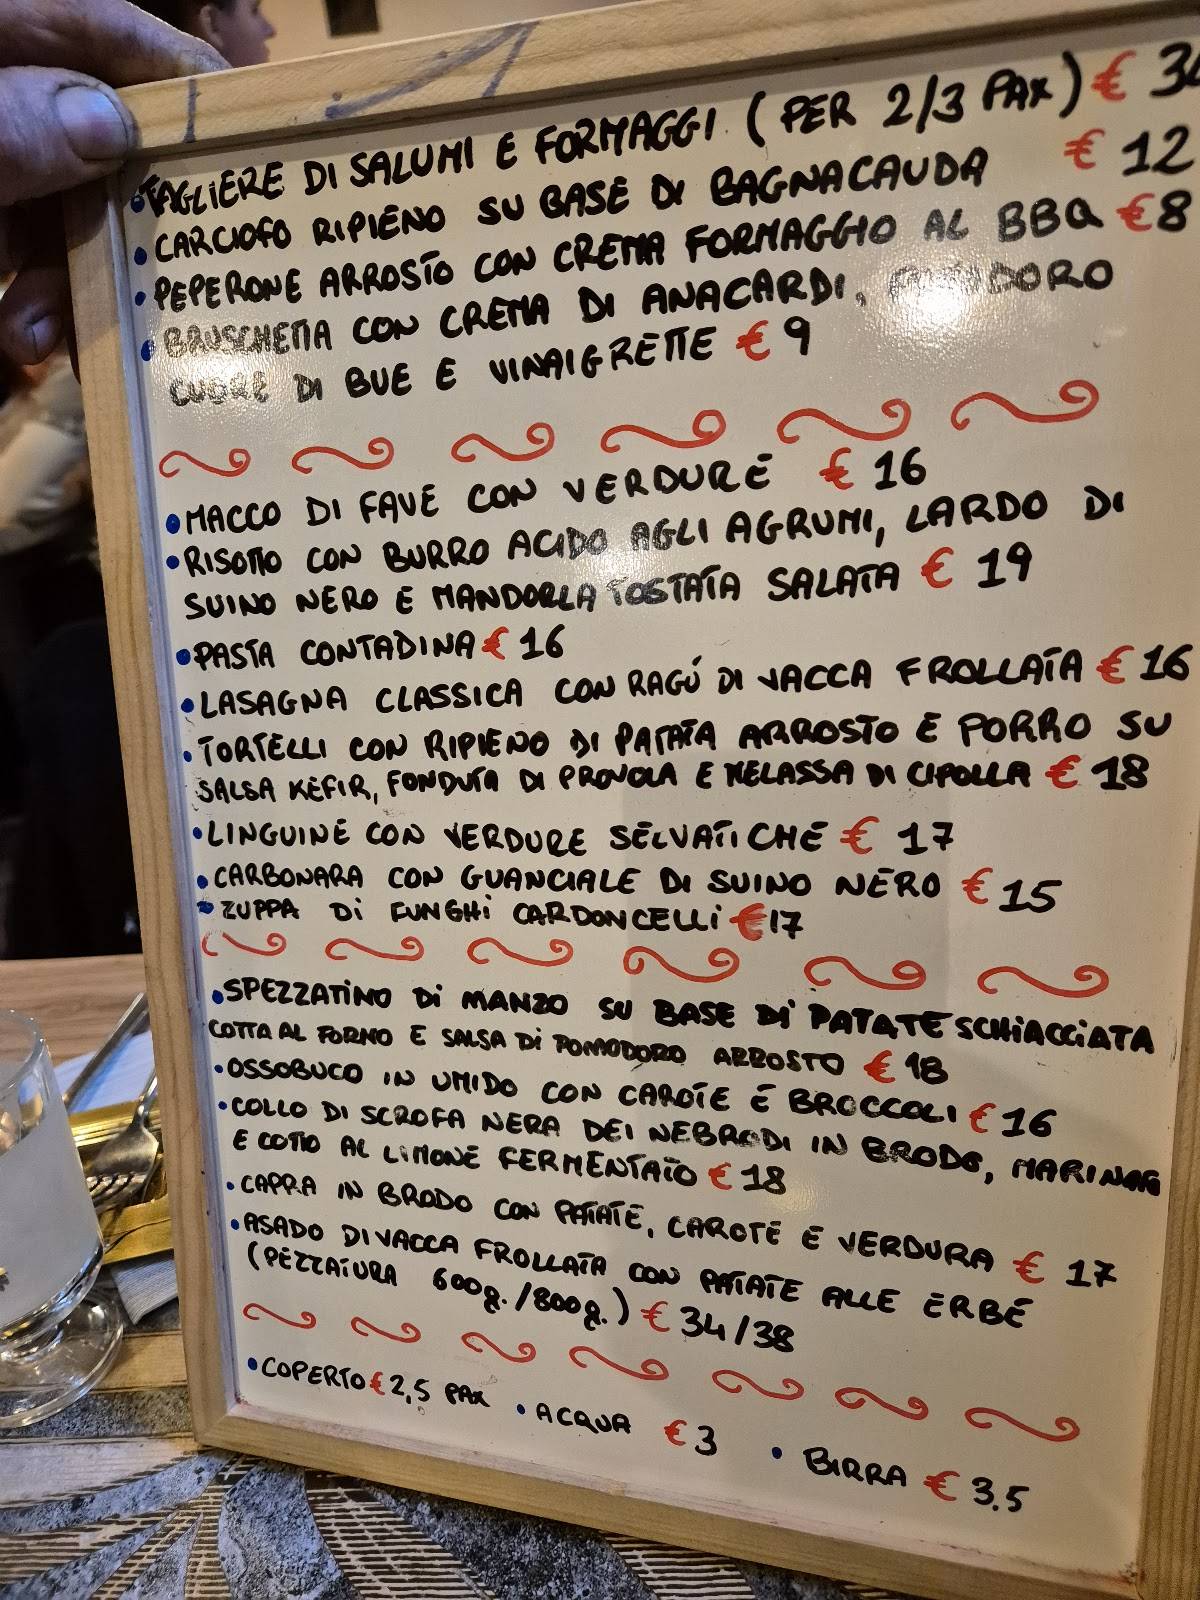 • TAGLIERE DI SALUMI E FORMAGGI. (PER 2/3 PAX) €
• CARCIOFO RIPIENO SU BASE DI BAGNACAUDA € 12
• PEPERONE ARROSTO CON CREMA FORMAGGIO AL BBQ €8
• BRUSCHETTA CON CREMA DI ANACARDI, POMODORO
CUORE DI BUE E VINAIGRETTE € 9
• MACCO DI FAVE CON VERDURE € 16
• RISOTTO CON BURRO ACIDO AGLI AGRUMI, LARDO DI
SUINO NERO E MANDORLA TOSTATA SALATA € 19
• PASTA CONTADINA € 16
• LASAGNA CLASSICA CON RAGÚ DI VACCA FROLLATA € 16
• TORTELLI CON RIPIENO DI PATATA ARROSTO E PORRO SU
SALSA KEFIR, FONDUTA DI PROVOLA E MELASSA DI CIPOLLA € 18
• LINGUINE CON VERDURE SELVATICHE € 17
• CARBONARA CON GUANCIALE DI SUINO NERO € 15
• ZUPPA DI FUNGHI CARDONCELLI €17
• SPEZZATINO DI MANZO SU BASE DI PATATE SCHIACCIATA
COTTA AL FORNO E SALSA DI POMODORO ARROSTO € 18
• OSSOBUCO IN UMIDO CON CAROTE E BROCCOLI € 16
• COLLO DI SCROFA NERA DEI NEBRODI IN BRODO, MARINATO
E COTTO AL LIMONE FERMENTATO € 18
• CAPRA IN BRODO CON PATATE, CAROTE E VERDURA € 17
• ASADO DI VACCA FROLLATA CON PATATE ALLE ERBE
(PEZZATURA 600g./800g.) € 34/38
• COPERTO € 2,5 PAX • ACQUA € 3 • BIRRA € 3.5